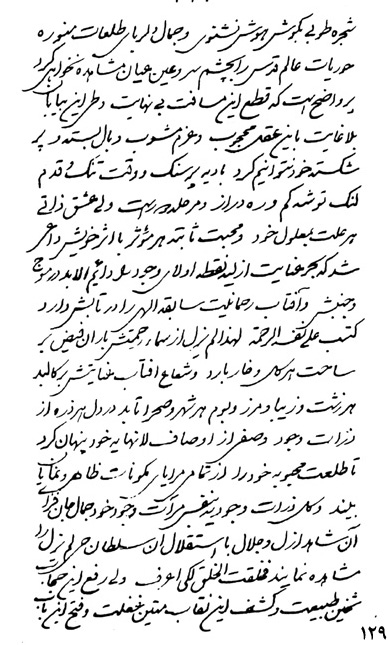 شجره طوبی بگوش هوش نشنوی وجمال دلربای طلعات منوره
حوریات عالم قدس را بچشم سر وعین عیان مشاهده نخواهی کرد
پر واضح است که قطع این مسافت بی نهایت وطی این بیابان
بلا غایت باین عقل محجوب وعزم مشوب وبال بسته وپر
شکسته خود نتوانیم کرد بادیه پر سنگ ووقت تنگ وقدم
لنگ توشه کم وره دراز ومرحله ولی عشق ذاتی
هر علت بمعلول خود ومحبت ثابته هر مؤثر با اثر خویش داعی
شد که بحر عنایت ازلیه نقطه اولای وجود دائم الابد در موج
وجنبش وآفتاب رحمانیت سابقه الهی را در تابش دارد
کتب علی نفسه الرحمة لهذا لم یزل از سماء رحمتش باران فیض بر
ساحت هر گل وخار بارد وشعاع افتاب عنایتش بر کالبد
هر زشت وزیبا ومرز وبوم هر شهر وصحرا تابد در دل هر ذره از
ذرات وجود وصفی از اوصاف لانهایه خود پنهان کرد
تا طلعت محبوبه خود را از تمامی مرایای مکونات ظاهر ونمایان
بیند وکل ذرات وجودیه بنفس مرآت وجود خود جمال جان فزای
آن شاهد ازل وجلال با استقلال آن سلطان لم یزل را
مشاهده نمایند فخلقت الخلق لکی اعرف ولی رفع این حجاب
ثخین طبیعت وکشف این نقاب متین غفلت وفتح این باب
١٢٩